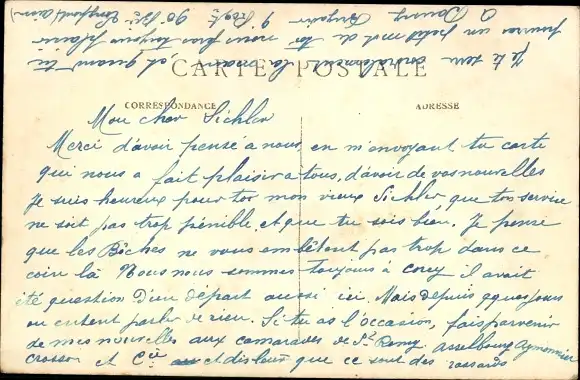 CARTE POSTALE
CORRESPONDANCE
ADRESSE
Mon cher Sichler
Merci d'avoir pensé a nous, en m'envoyant tu carte
qui nous a fait plaisir a tous, d'avoir de vos nouvelles
Je suis heureux pour toi mon vieux Sichler, que ton service
ne soit pas trop pénible, et que tu sois bien. Je pense
que les Bôches ne vous embêtent pas trop dans ce
coin là Nous nous sommes toujours à Corcy il avait
été question d'un départ aussi ici. Mais depuis qques jours
on entent parler de rien. Si tu as l'occasion, fais parvenir
de mes nouvelles aux camarades de St Remy, Asselbourg Aymonnier
Crosson et Cie et dis leur que ce sont des
Je te serre cordialement la main, et quand tu
pourras un petit mot de toi nous fera toujours plaisir
A Dourny Brigadier
9e 90e Bie Longpont (Aisne)